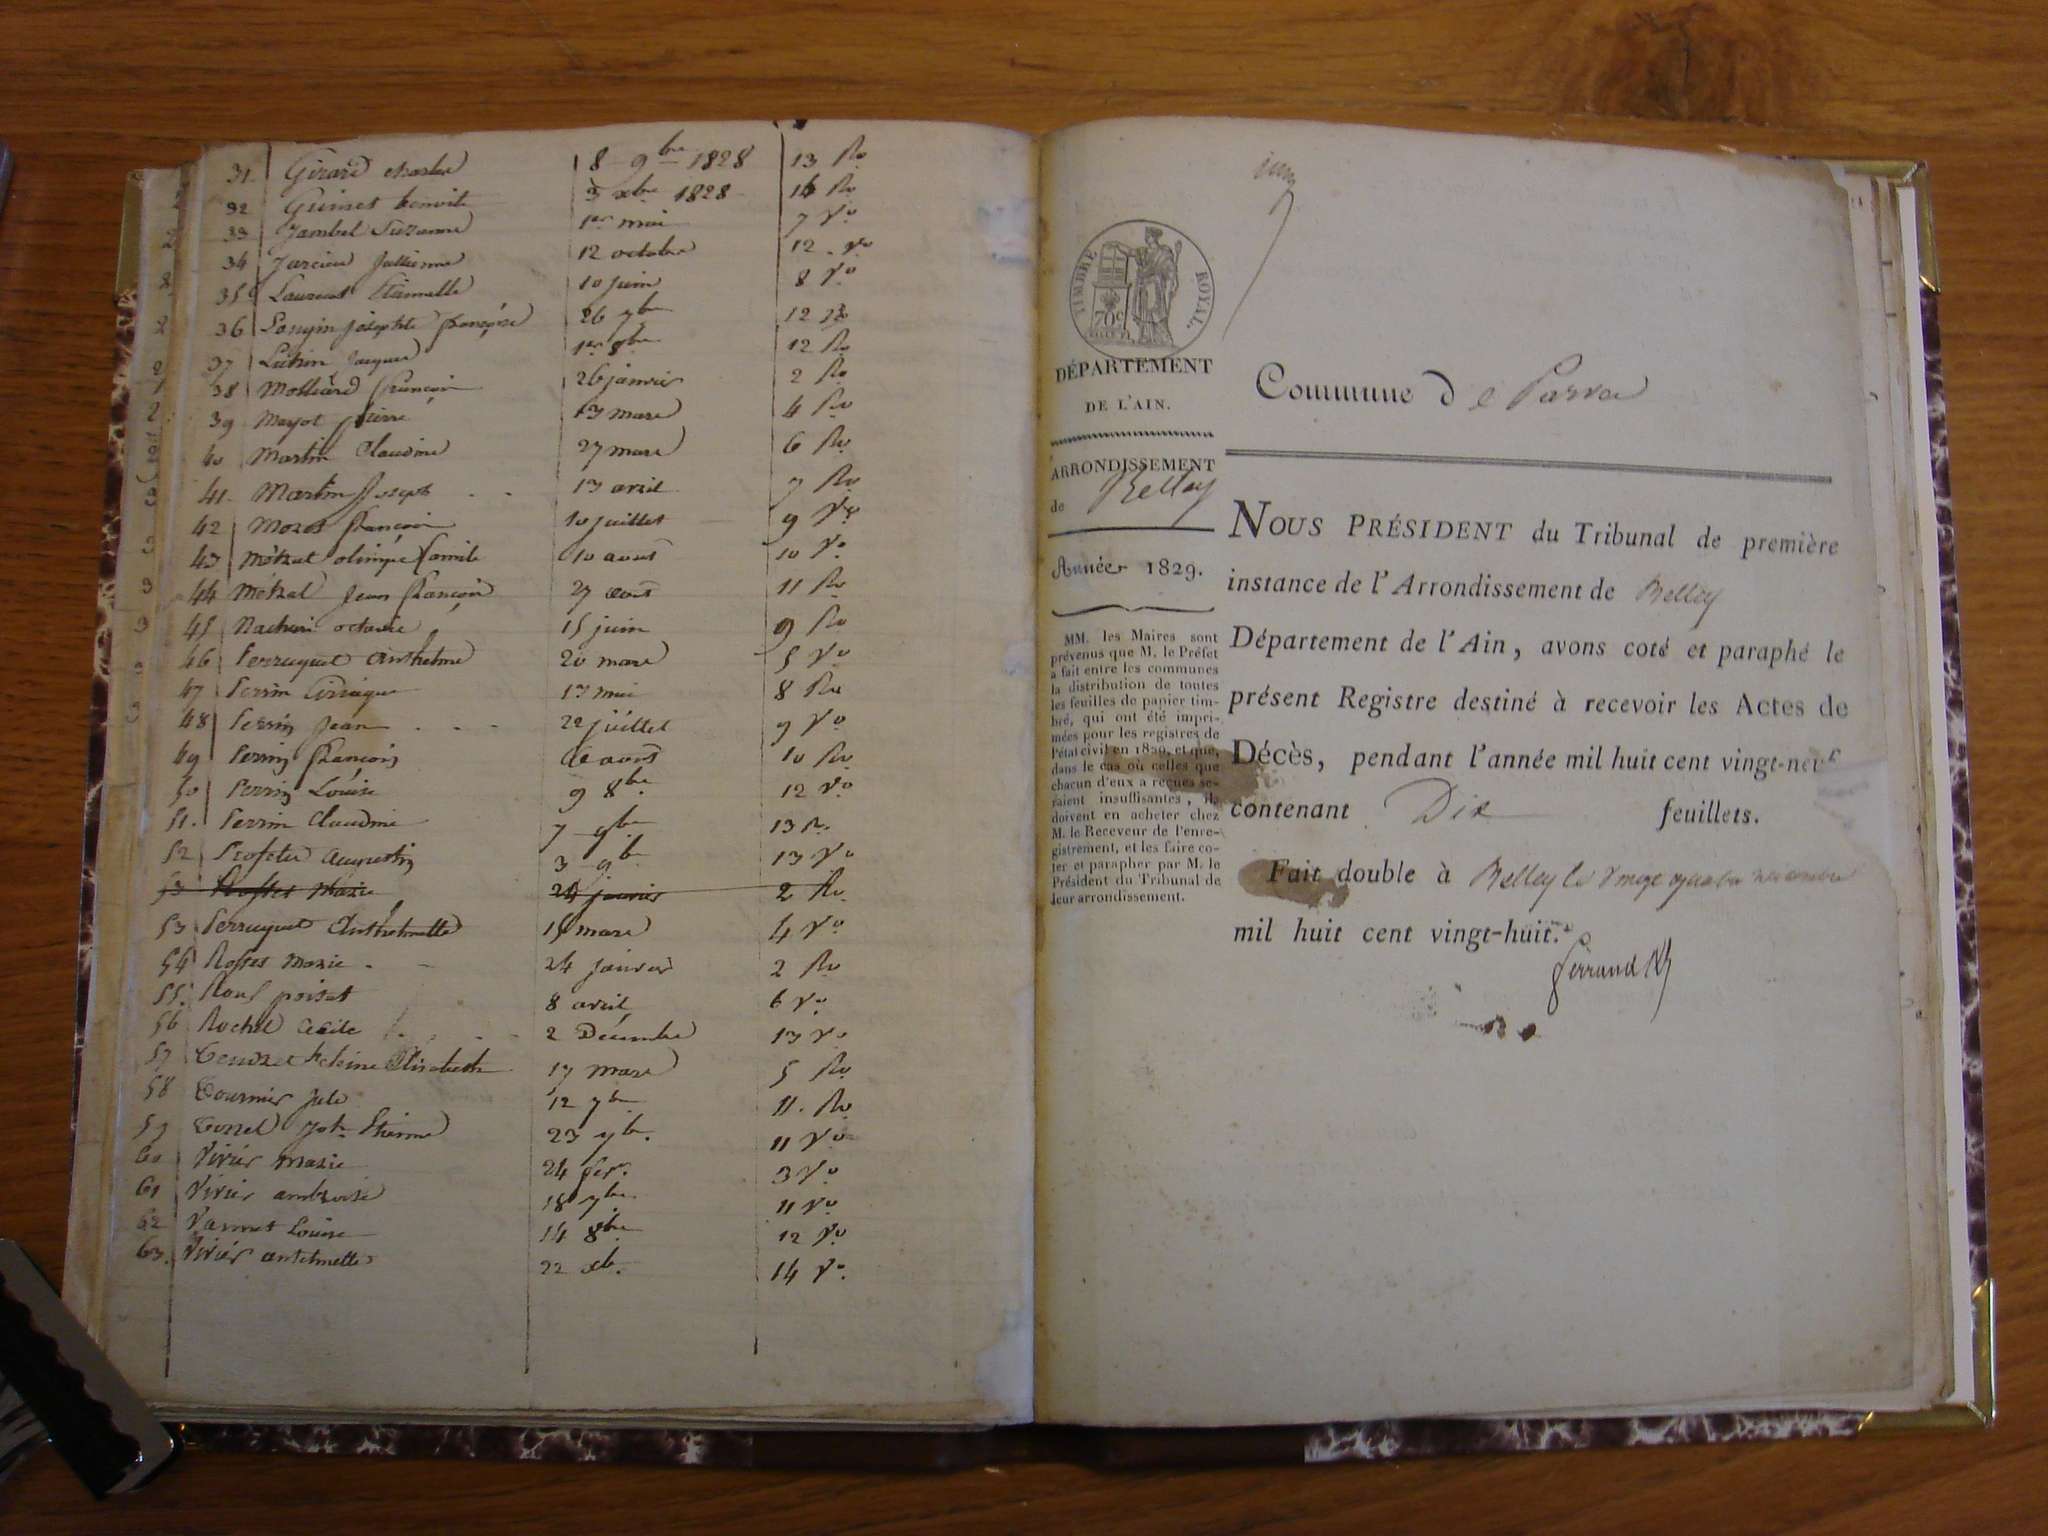 31. Girard charles 8 9bre 1828 13 Ro
32 Guinet benoit 3 xbre 1828 14 Ro
33 Jambel Suzanne 1er mai 7 Vo
34 Julienne 12 octobre 12 Vo
35 Laurent Etiennette 10 juin 8 Vo
36 Longin josephte françoise 26 7bre 12 Ro
37 Jacques 1er 8bre 12 Ro
38 Molliard françois 26 janvier 2 Ro
39 Mayot pierre 13 mars 4 Ro
40 Martin Claudine 27 mars 6 Ro
41. Martin Joseph 13 avril 7 Ro
42 Morel françois 10 juillet 9 Vo
43 Métral olimpe Camile 10 aout 10 Vo
44 Métral Jean françois 27 aout 11 Ro
45 octavie 15 juin 9 Ro
46 Perruquet Anthelme 20 mars 5 Vo
47 Perrin 17 mai 8 Ro
48 Perrin Jean 22 juillet 9 Vo
49 Perrin françois aout 10 Ro
50 Perrin Louise 9 8bre 12 Vo
51. Perrin Claudine 7 9bre 13 Ro
52 Augustin 3 9bre 13 Vo
53 Rosset Marie 24 janvier 2 Ro
53 Perruquet Anthelmette 15 mars 4 Vo
54 Rosset Marie 24 janvier 2 Ro
55. Roux 8 avril 6 Vo
56 Rochet Cécile 2 Décembre 13 Vo
57 Tendret heleine Elisabeth 17 mars 5 Ro
58 Tournier Jule 12 7bre 11. Ro
59 Jph Etienne 23 7bre. 11 Vo
60 Vivier Marie 24 fer. 3 Vo
61 Vivier ambroise 18 7bre 11 Vo
62 Vannet Louise 14 8bre 12 Vo
63. Vivier antelmette 22 xbre. 14 Vo.
TIMBRE ROYAL.
70c
DÉPARTEMENT
DE L'AIN.
Commune de Parve
ARRONDISSEMENT
de Belley
Année 1829.
MM. les Maires sont
prévenus que M. le Préfet
a fait entre les communes
la distribution de toutes
les feuilles de papier tim-
bré, qui ont été impri-
mées pour les registres de
l'état civil en 1829, et que,
dans le cas où celles que
chacun d'eux a reçues se-
raient insuffisantes, ils
doivent en acheter chez
M. le Receveur de l'enre-
gistrement, et les faire co-
ter et parapher par M. le
Président du Tribunal de
leur arrondissement.
NOUS PRÉSIDENT du Tribunal de première
instance de l'Arrondissement de Belley
Département de l'Ain, avons coté et paraphé le
présent Registre destiné à recevoir les Actes de
Décès, pendant l'année mil huit cent vingt-neuf
contenant Dix feuillets.
Fait double à Belley le vingt quatre novembre
mil huit cent vingt-huit.